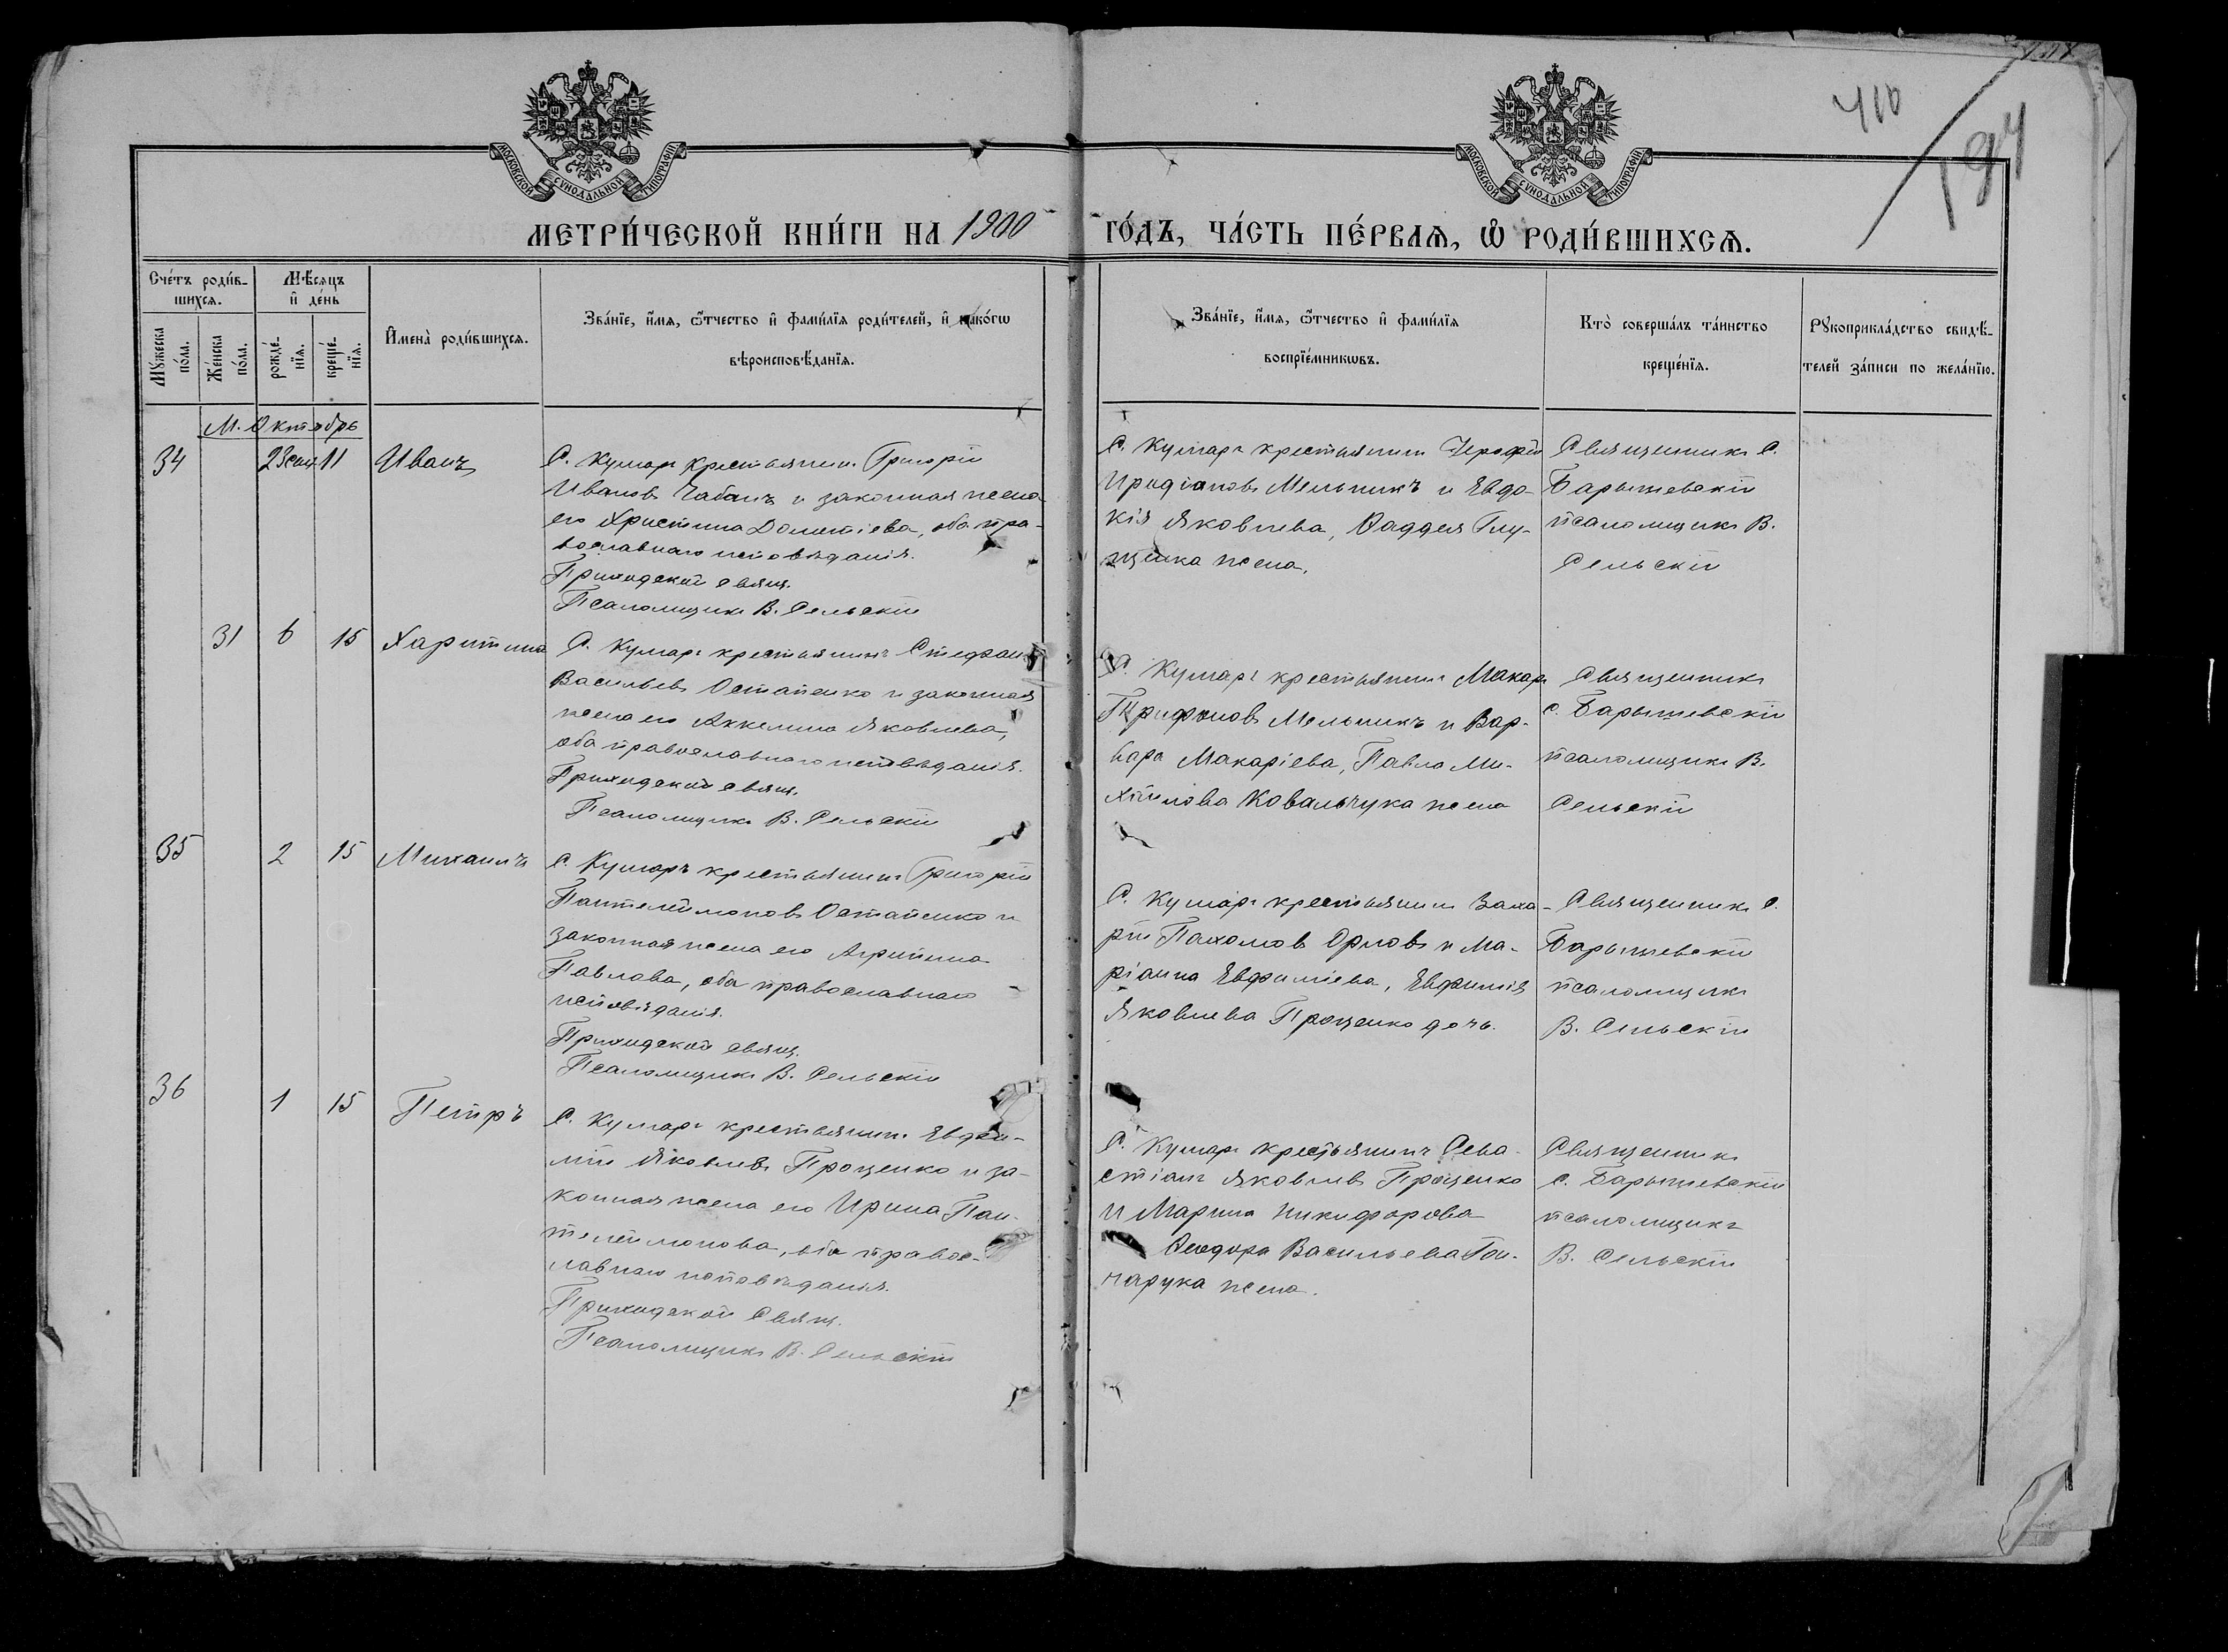 МОСКОВСКОЙ СѴНОДАЛЬНОЙ ТИПОГРАФІИ
МОСКОВСКОЙ СѴНОДАЛЬНОЙ ТИПОГРАФІИ
410
194
МЕТРИ́ЧЕСКОЙ КНИ́ГИ НА 1900 ГО́ДЪ, ЧА́СТЬ ПЕ́РВАѦ, Ѡ҆ РОДИ́ВШИХСѦ.
Сче́тъ роди́в-
шихсѧ.
Мѣ́сѧцъ
и҆ де́нь
Мꙋ́жеска
по́ла.
Же́нска
по́ла.
рожде́-
нїѧ.
креще́-
нїѧ.
И҆мена̀ роди́вшихсѧ.
Зва́нїе, и҆́мѧ, ѻ҆́тчество и҆ фами́лїѧ роди́телей, и҆ како́гѡ
вѣроисповѣ́данїѧ.
Зва́нїе, и҆́мѧ, ѻ҆́тчество и҆ фами́лїѧ
воспрїе́мникѡвъ.
Кто̀ соверша́лъ та́инство
креще́нїѧ.
Рꙋкоприкла́дство свидѣ́-
телей за́писи по жела́нїю.
М. Октябрь
34 23 сент 11 Иванъ
С. Кумаръ крестьянинъ Григорій
Ивановъ Чабанъ и законная жена
его Христина Дометіева, оба пра-
вославнаго исповѣданія.
Приходской свящ.
Псаломщикъ В. Сельскій
С. Кумаръ крестьянинъ Іерофей
Иродіоновъ Мельникъ и Евдо-
кія Яковлева, Фаддея Глу-
щенка жена.
Священникъ С.
Барышевскій
псаломщикъ В.
Сельскій
31 6 15 Харитина
С. Кумаръ крестьянинъ Стефанъ
Васильевъ Остапенко и законная
жена его Аккелина Яковлева,
оба православнаго исповѣданія.
Приходской свящ.
Псаломщикъ В. Сельскій
С. Кумаръ крестьянинъ Макар
Трифоновъ Мельникъ и Вар-
вара Макаріева, Павла Ми-
хайлова Ковальчука жена
Священникъ
С. Барышевскій
псаломщикъ В.
Сельскій
35 2 15 Михаилъ
С. Кумаръ крестьянинъ Григорій
Пантелеймоновъ Остапенко и
законная жена его Агрипина
Павлова, оба православнаго
исповѣданія.
Приходской свящ.
Псаломщикъ В. Сельскій
С. Кумаръ крестьянинъ Заха-
рій Пахомов Орловъ и Ма-
ріанна Евфиміева, Евфимія
Яковлева Проценко дочь.
Священникъ С.
Барышевскій
псаломщикъ
В. Сельскій
36 1 15 Петръ
С. Кумаръ крестьянинъ Евфи-
мій Яковлевъ Проценко и за-
конная жена его Ирина Пан-
телеймонова, оба правос-
лавнаго исповѣданія.
Приходской Свящ.
Псаломщикъ В. Сельскій
С. Кумаръ крестьянинъ Сева-
стіанъ Яковлевъ Проценко
и Марина Никифорова
Феодора Васильева Гон-
чарука жена.
Священникъ
С. Барышевскій
псаломщикъ
В. Сельскій